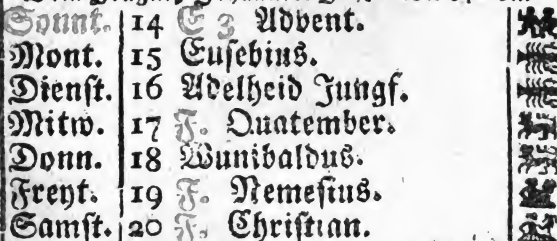 Sonnt. 14 E 3 Advent.
Mont. 15 Eusebius.
Dienst. 16 Adelheid Jungf.
Mitw. 17 F. Quatember.
Donn. 18 Wunibaldus.
Freyt. 19 F. Nemesius.
Samst. 20 F. Christian.